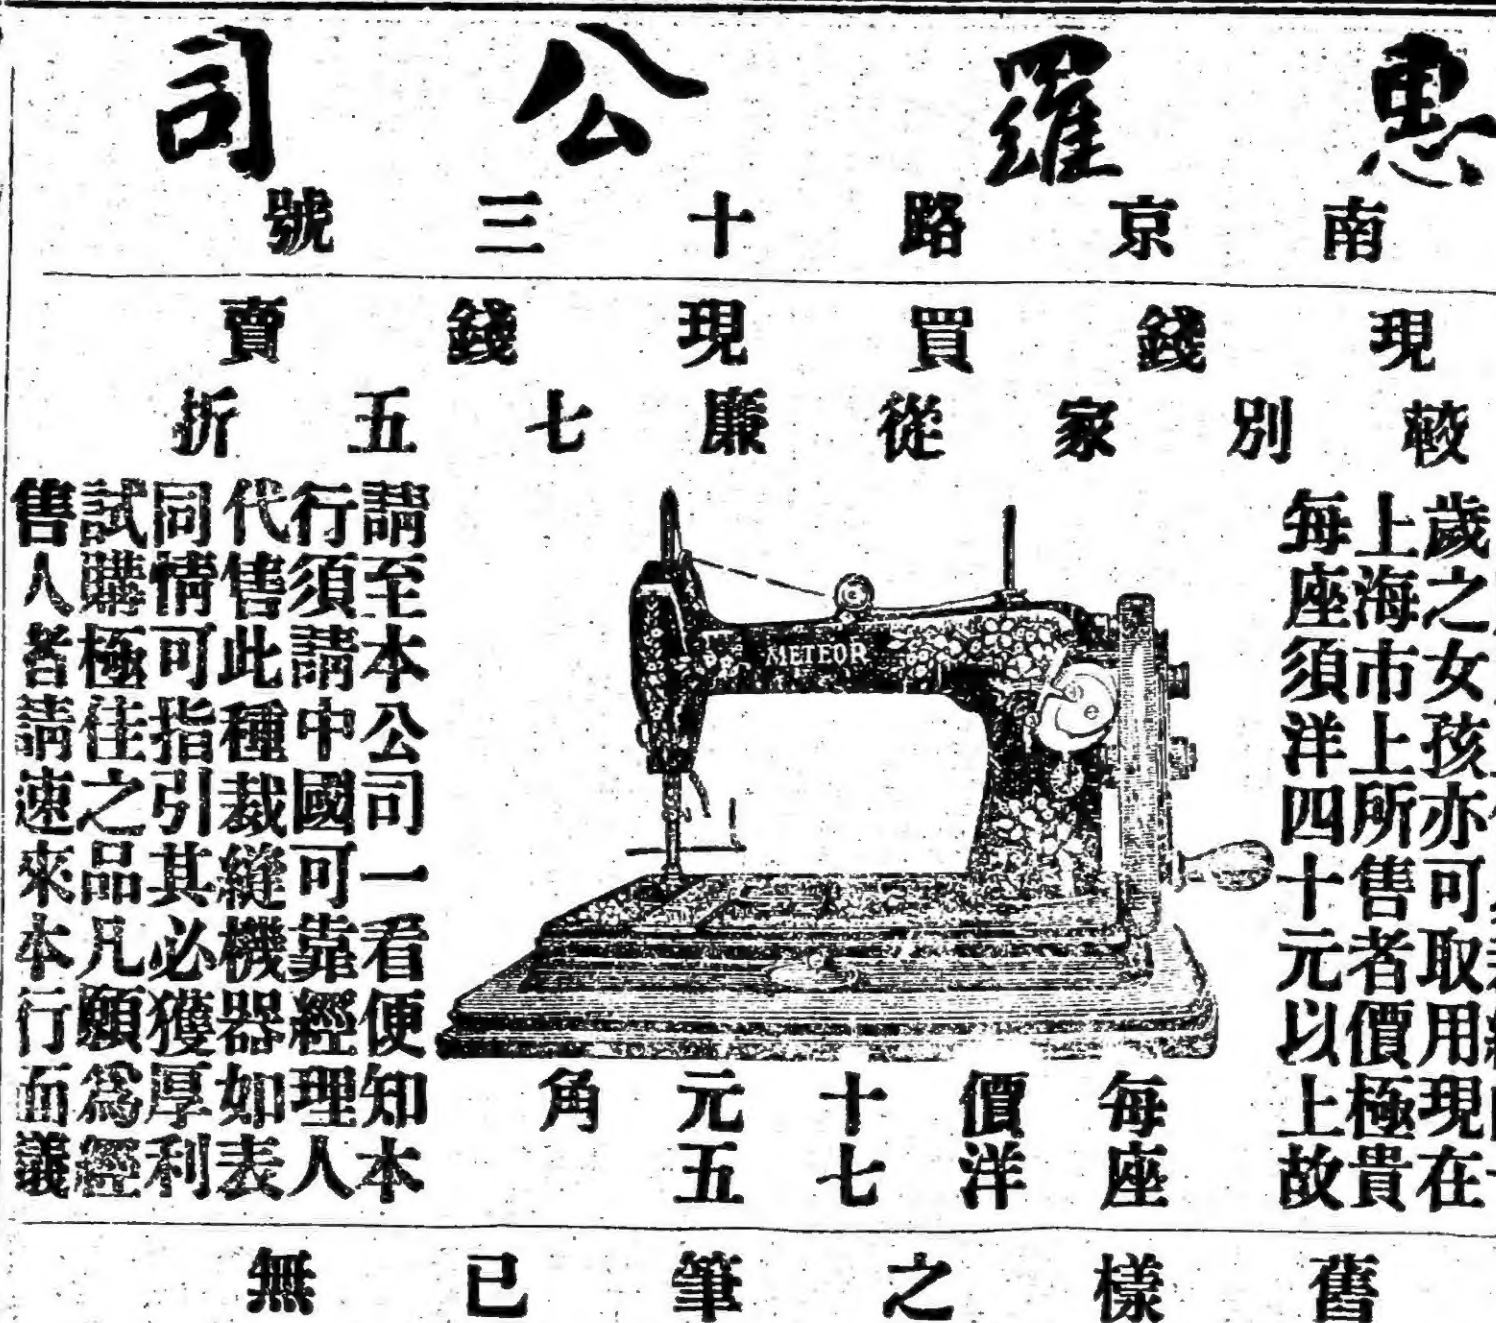 惠羅公司
南京路十三號
現錢買現錢賣
較別家從廉七五折
歲之女孩亦可取用現在
上海市上所售者價極貴
每座須洋四十元以上故
METEOR
每座
價洋
十七
元五
角
請至本公司一看便知本
行須請中國可靠經理人
代售此種裁縫機器如表
同情可指引其必獲厚利
試購極佳之品凡願爲經
售人者請速來本行面議
舊樣之筆已無